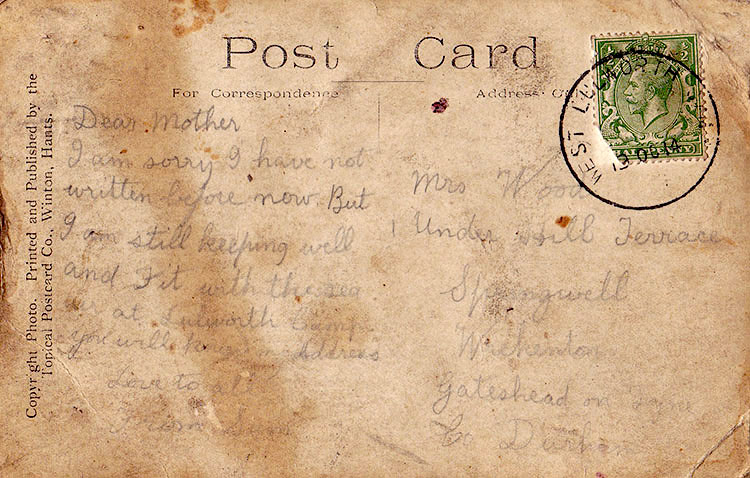 Post Card
For Correspondence
Address Only
WEST LULWORTH
OC 14
Dear Mother
I am sorry I have not
written before now. But
I am still keeping well
and fit with the sea
at Lulworth Camp
you will Address
Love to
From
Mrs Wood
1 Under Hill Terrace
Springwell
Gateshead on Tyne
Co Durham
Copyright Photo. Printed and Published by the
Topical Postcard Co., Winton, Hants.